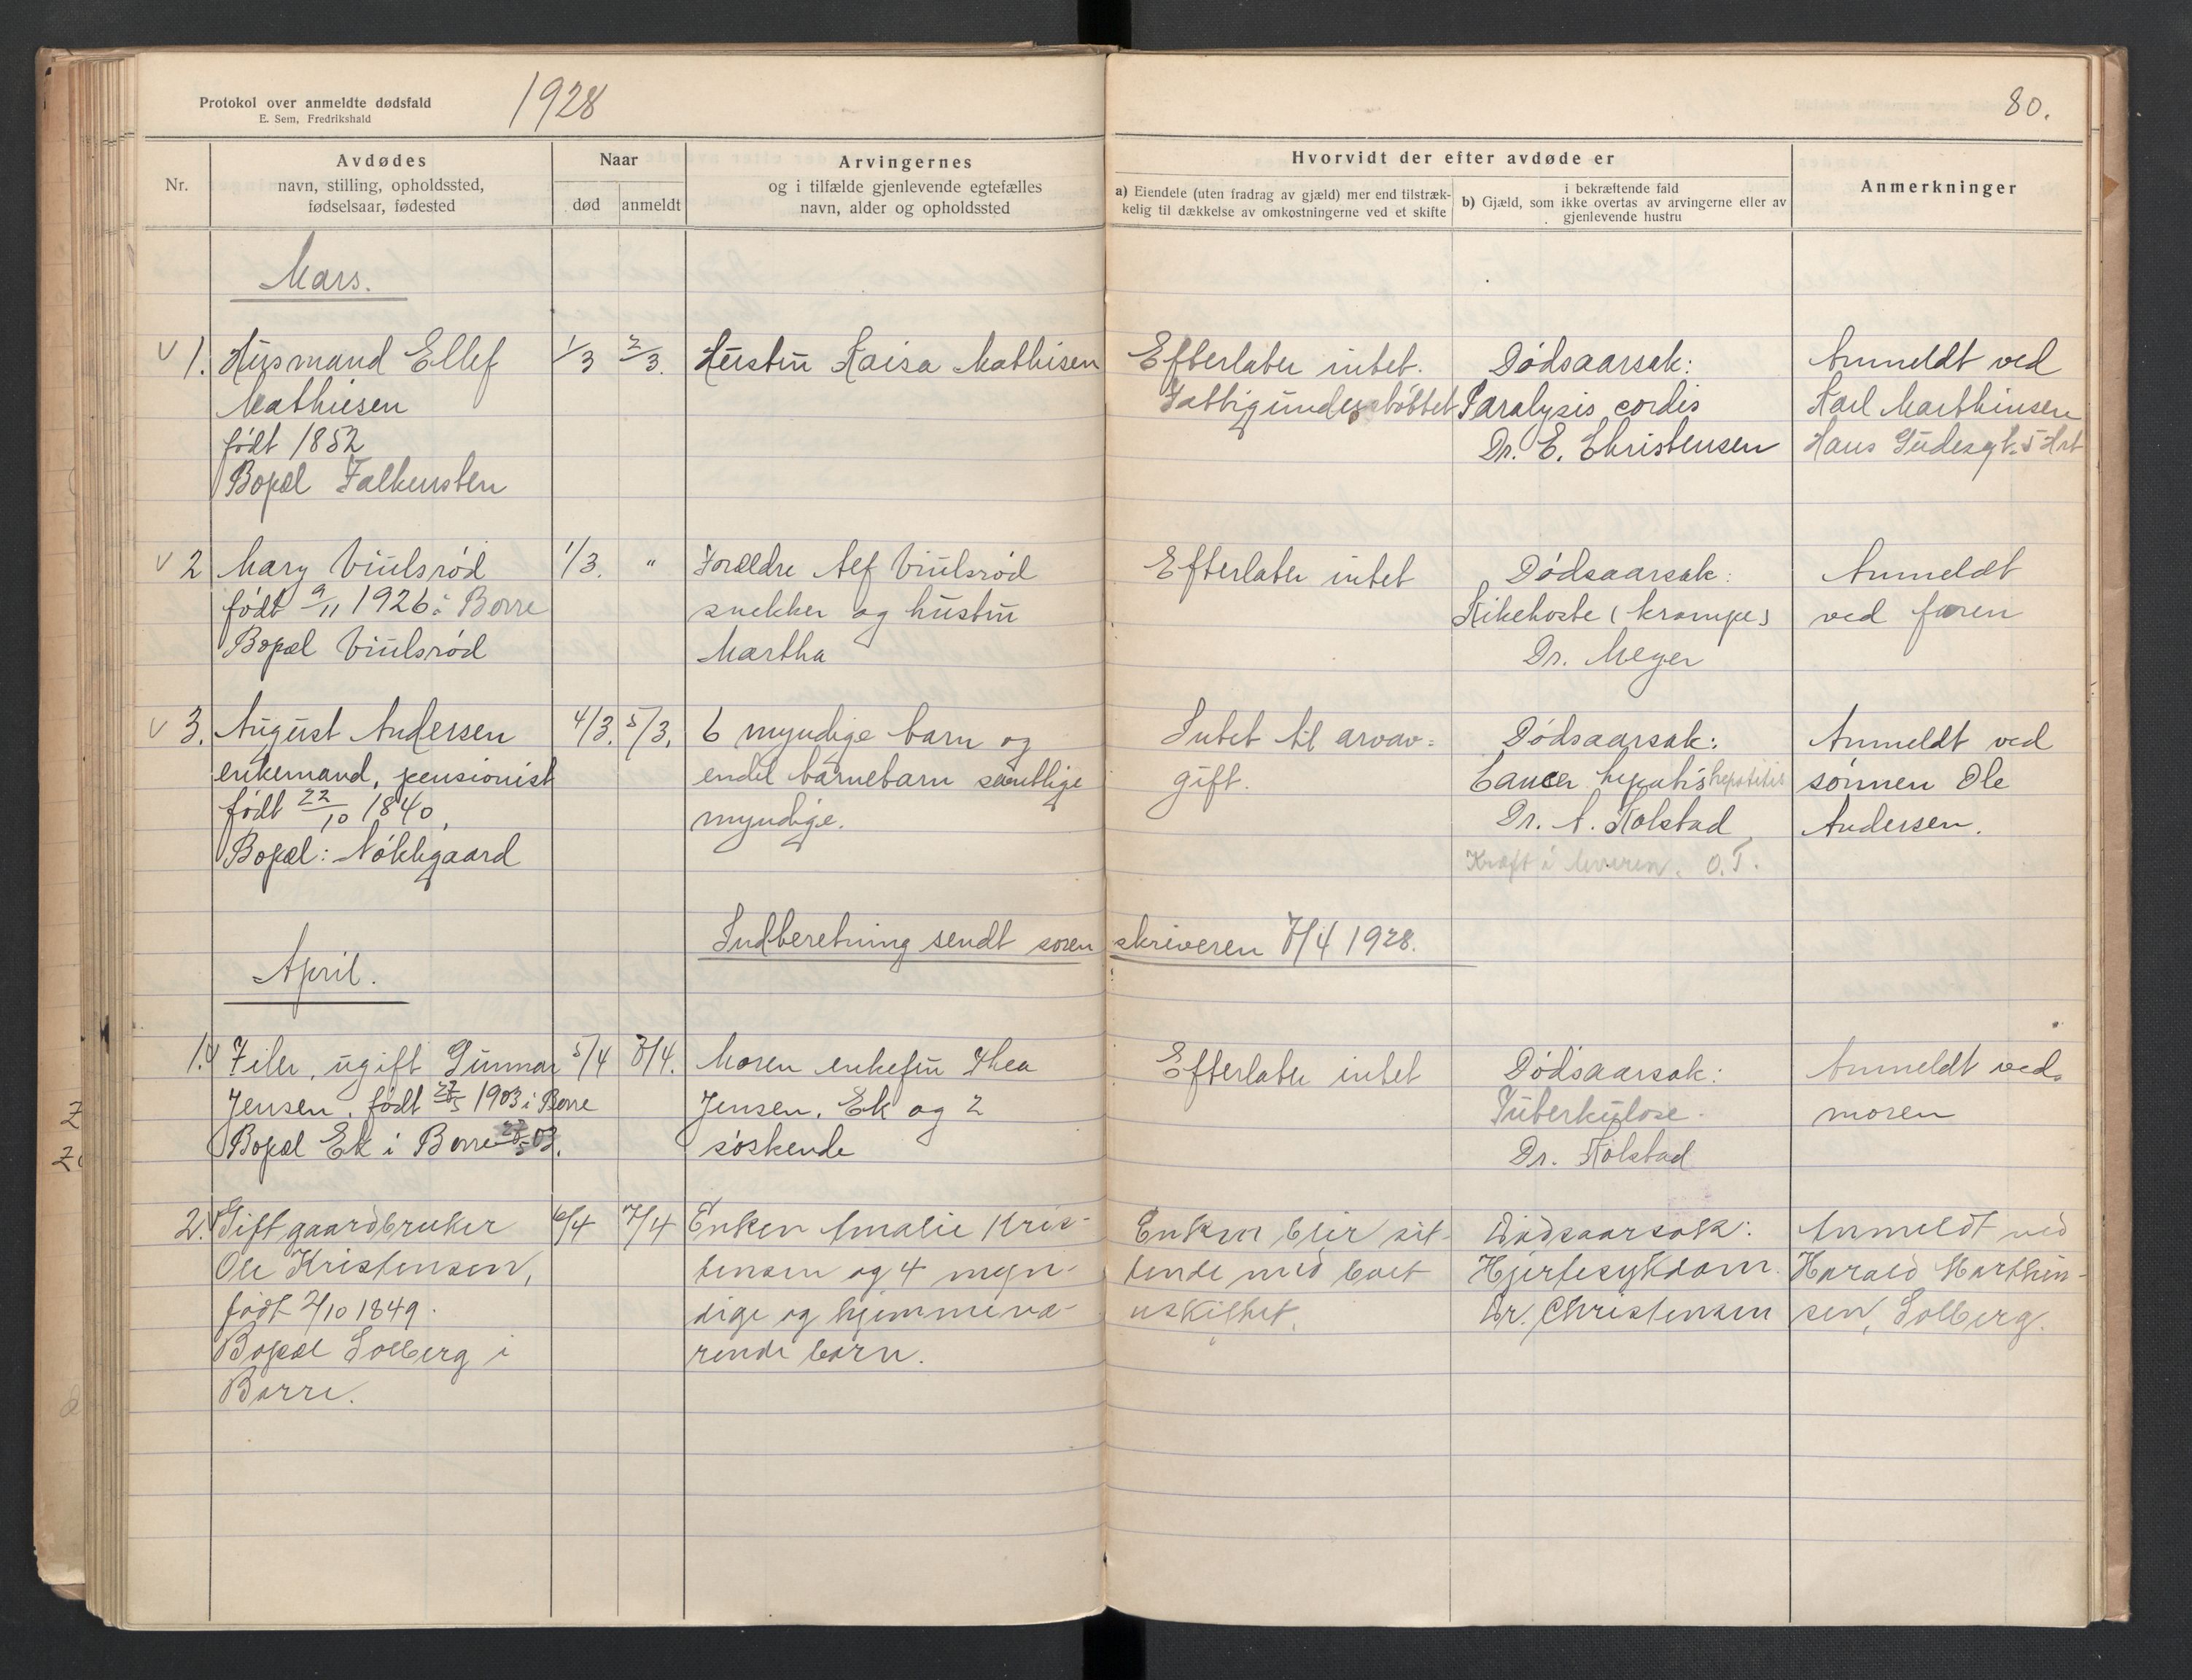 Protokol over anmeldte dødsfald
E. Sem, Fredrikshald
1928
80.
Nr.
Avdødes
navn, stilling, opholdssted,
fødselsaar, fødested
Naar
død
anmeldt
Arvingernes
og i tilfælde gjenlevende egtefælles
navn, alder og opholdssted
Hvorvidt der efter avdøde er
a) Eiendele (uten fradrag av gjæld) mer end tilstræk-
kelig til dækkelse av omkostningerne ved et skifte
i bekræftende fald
b) Gjæld, som ikke overtas av arvingerne eller av
gjenlevende hustru
Anmerkninger
Mars.
v 1. Husmand Ellef
Mathiesen
født 1852
Bopæl Falkensten
1/3
2/3.
Hustru Kaisa Mathisen
Efterlater intet.
Fattigunderstøttet
Dødsaarsak:
Paralysis cordis
Dr. E. Christensen
Anmeldt ved
Karl Marthinsen
Hans Gudesgt. 5 Hrt
v 2 Mary Viulsrød
født 9/11 1926 i Borre
Bopæl Viulsrød
1/3.
"
Forældre Alf Viulsrød
snekker og hustru
Martha
Efterlater intet
Dødsaarsak:
Kikehoste (krampe)
Dr. Meyer
Anmeldt
ved faren
v 3. August Andersen
enkemand, pensionist
født 22/10 1840,
Bopæl: Nøklegaard
4/3.
5/3.
6 myndige barn og
endel barnebarn samtlige
myndige.
Intet til arvav=
gift.
Dødsaarsak:
Cancer hepatis hepatitis
Dr. A. Kolstad,
Kræft i leveren. O.T.
Anmeldt ved
sønnen Ole
Andersen.
Indberetning sendt sorenskriveren 7/4 1928.
April.
1. v Filer, ugift Gunnar
Jensen, født 27/5 1903 i Borre
Bopæl Ek i Borre 03.
5/4
7/4.
Moren enkefru Thea
Jensen, Ek og 2
søskende
Efterlater intet
Dødsaarsak:
Tuberkulose.
Dr. Kolstad
Anmeldt ved
moren
2. v Gift gaardbruker
Ole Kristensen,
født 2/10 1849.
Bopæl Solberg i
Borre.
6/4
7/4
Enken Amalie Kris-
tensen og 4 myn-
dige og hjemmevæ-
rende barn.
Enken blir sit-
tende med boet
uskiftet.
Dødsaarsak:
Hjertesykdom.
Dr. Christensen
Anmeldt ved
Harald Marthin-
sen, Solberg.